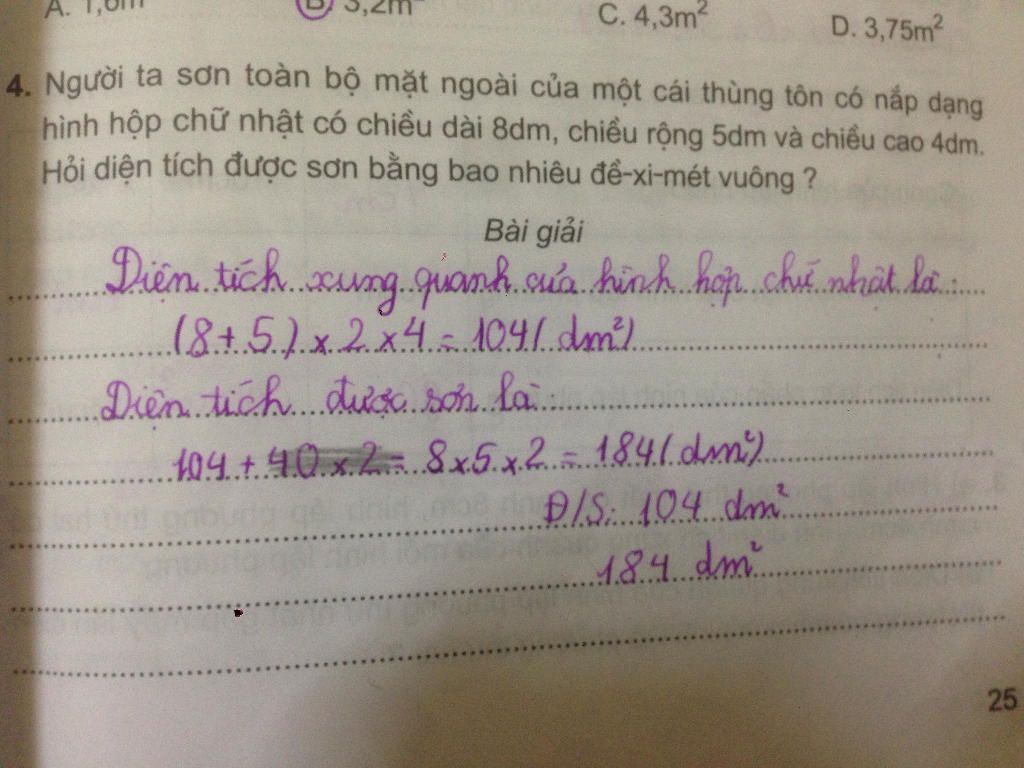 A. 1,6m B. 3,2m² C. 4,3m² D. 3,75m²
4. Người ta sơn toàn bộ mặt ngoài của một cái thùng tôn có nắp dạng
hình hộp chữ nhật có chiều dài 8dm, chiều rộng 5dm và chiều cao 4dm.
Hỏi diện tích được sơn bằng bao nhiêu đề-xi-mét vuông ?
Bài giải
Diện tích xung quanh của hình hộp chữ nhật là:
(8+5) x 2 x 4 = 104 ( dm²)
Diện tích được sơn là
104 + 40 x 2 = 8 x 5 x 2 = 184 ( dm²)
Đ/S: 104 dm²
184 dm²
25